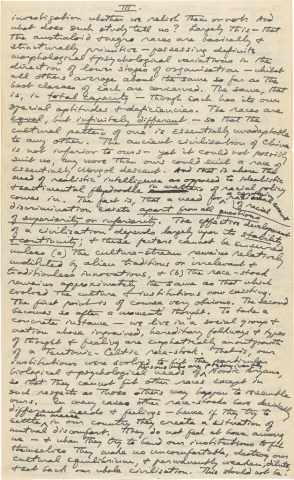 III.
investigation whether we relish them or not. And
what does such study tell us? Largely this— that
the australoid & negro races are basically &
structurally primitive — possessing definite
morphological & psychological variations in the
direction of lower stages of organisation — whilst
all others average about the same so far as the
best classes of each are concerned. The same, that
is, in total capacity — though each has its own
special aptitudes & deficiencies. The races are
equal, but infinitely different — so that the
cultural pattern of one is essentially unadaptable
to any other. The ancient civilisation of China
is not inferior to ours — yet it could not possibly
suit us, any more than ours could suit a race of
essentially Mongol descent. And that is where the
need of realistic intelligence as opposed to idealistic
& sentimental flapdoodle in matters of racial policy
comes in. The fact is, that a need for
discrimination exists apart from all questions
of superiority or inferiority. The effective development
of a civilisation depends largely upon its stability
& continuity; & these factors cannot be ensured
unless (a) the culture-stream remains relatively
undiluted by alien traditions or irrelevant or
traditionless innovations, & (b) the race-stock
remains approximately the same as that which
evolved the culture & institutions now existing.
The first point is of course very obvious. The second
becomes so after a moment's thought. To take a
concrete instance — we live in a social group &
nation whose ingrained, hereditary folkways & types
of thought & feeling are emphatically an outgrowth
of a Teutonic-Celtic race-stock. That is, our
institutions were evolved to fit the particular
biological & psychological needs of Nordic Aryans,
so that they cannot fit other races except in
such respects as those others may happen to resemble
ours. In most cases other races have decidedly
different needs & feelings — hence if they try to
settle en masse in our country they create a situation of
mutual discomfort. They do not feel at home among
us — & when they try to bend our institutions to fit
themselves they make us uncomfortable, destroy our
cultural equilibrium, & permanently weaken, dilute,
& set back our whole civilisation. This should not be.